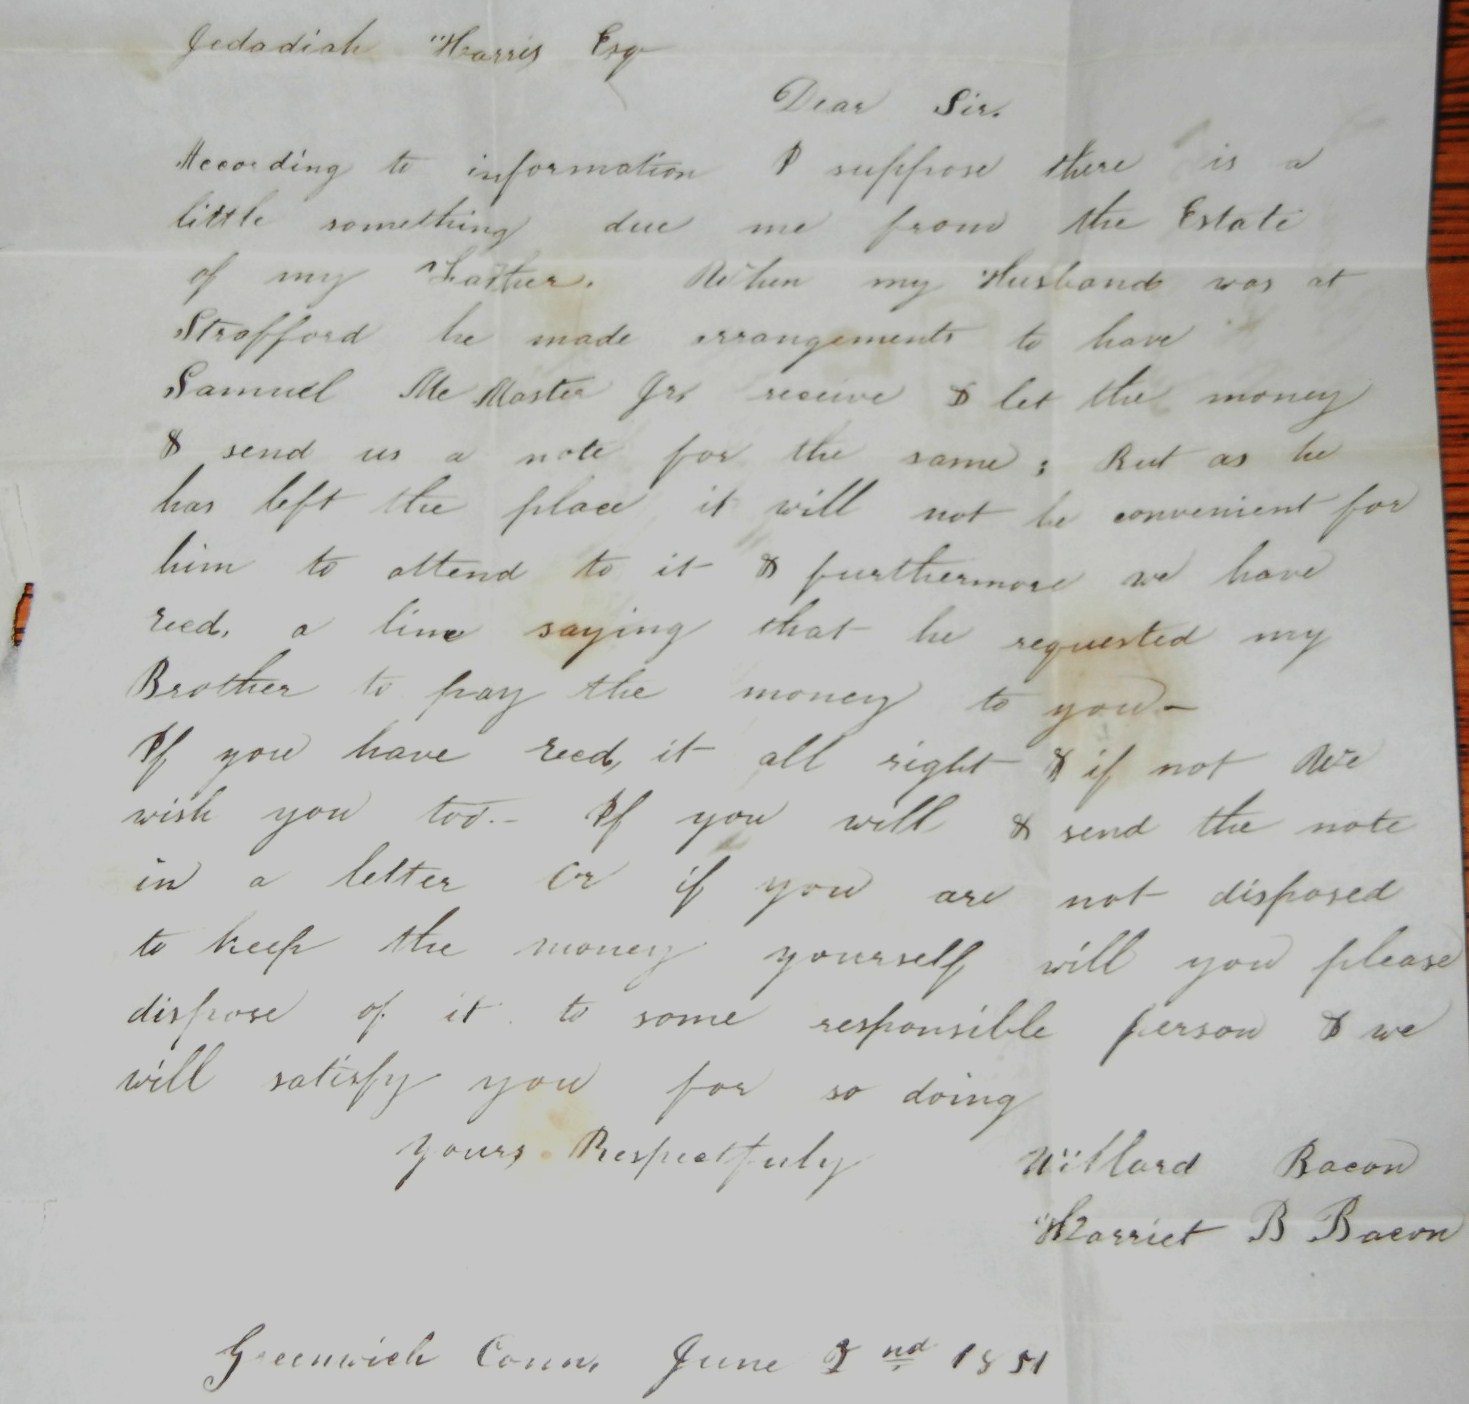 Jedadiah Harris Esq
Dear Sir.
According to information I suppose there is a
little something due me from the Estate
of my Father. When my Husband was at
Strafford he made arrangements to have
Samuel Mc Master Jr. receive & let the money
& send us a note for the same; But as he
has left the place it will not be convenient for
him to attend to it & furthermore we have
recd. a line saying that he requested my
Brother to pay the money to you –
If you have recd, it all right & if not We
wish you too. – If you will & send the note
in a letter Or if you are not disposed
to keep the money yourself will you please
dispose of it to some responsible person & we
will satisfy you for so doing
Yours Respectfuly Willard Bacon
Harriet B Bacon
Greenwich Conn. June 2nd 1851